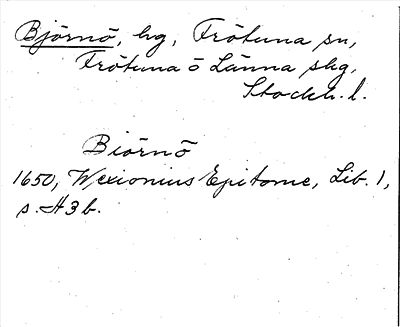 Björnö, hg, Frötuna sn,
Frötuna o Länna slg,
Stockh. l.
Biörnö
1650, Wexionius Epitome, Lib. 1,
s. H3b.